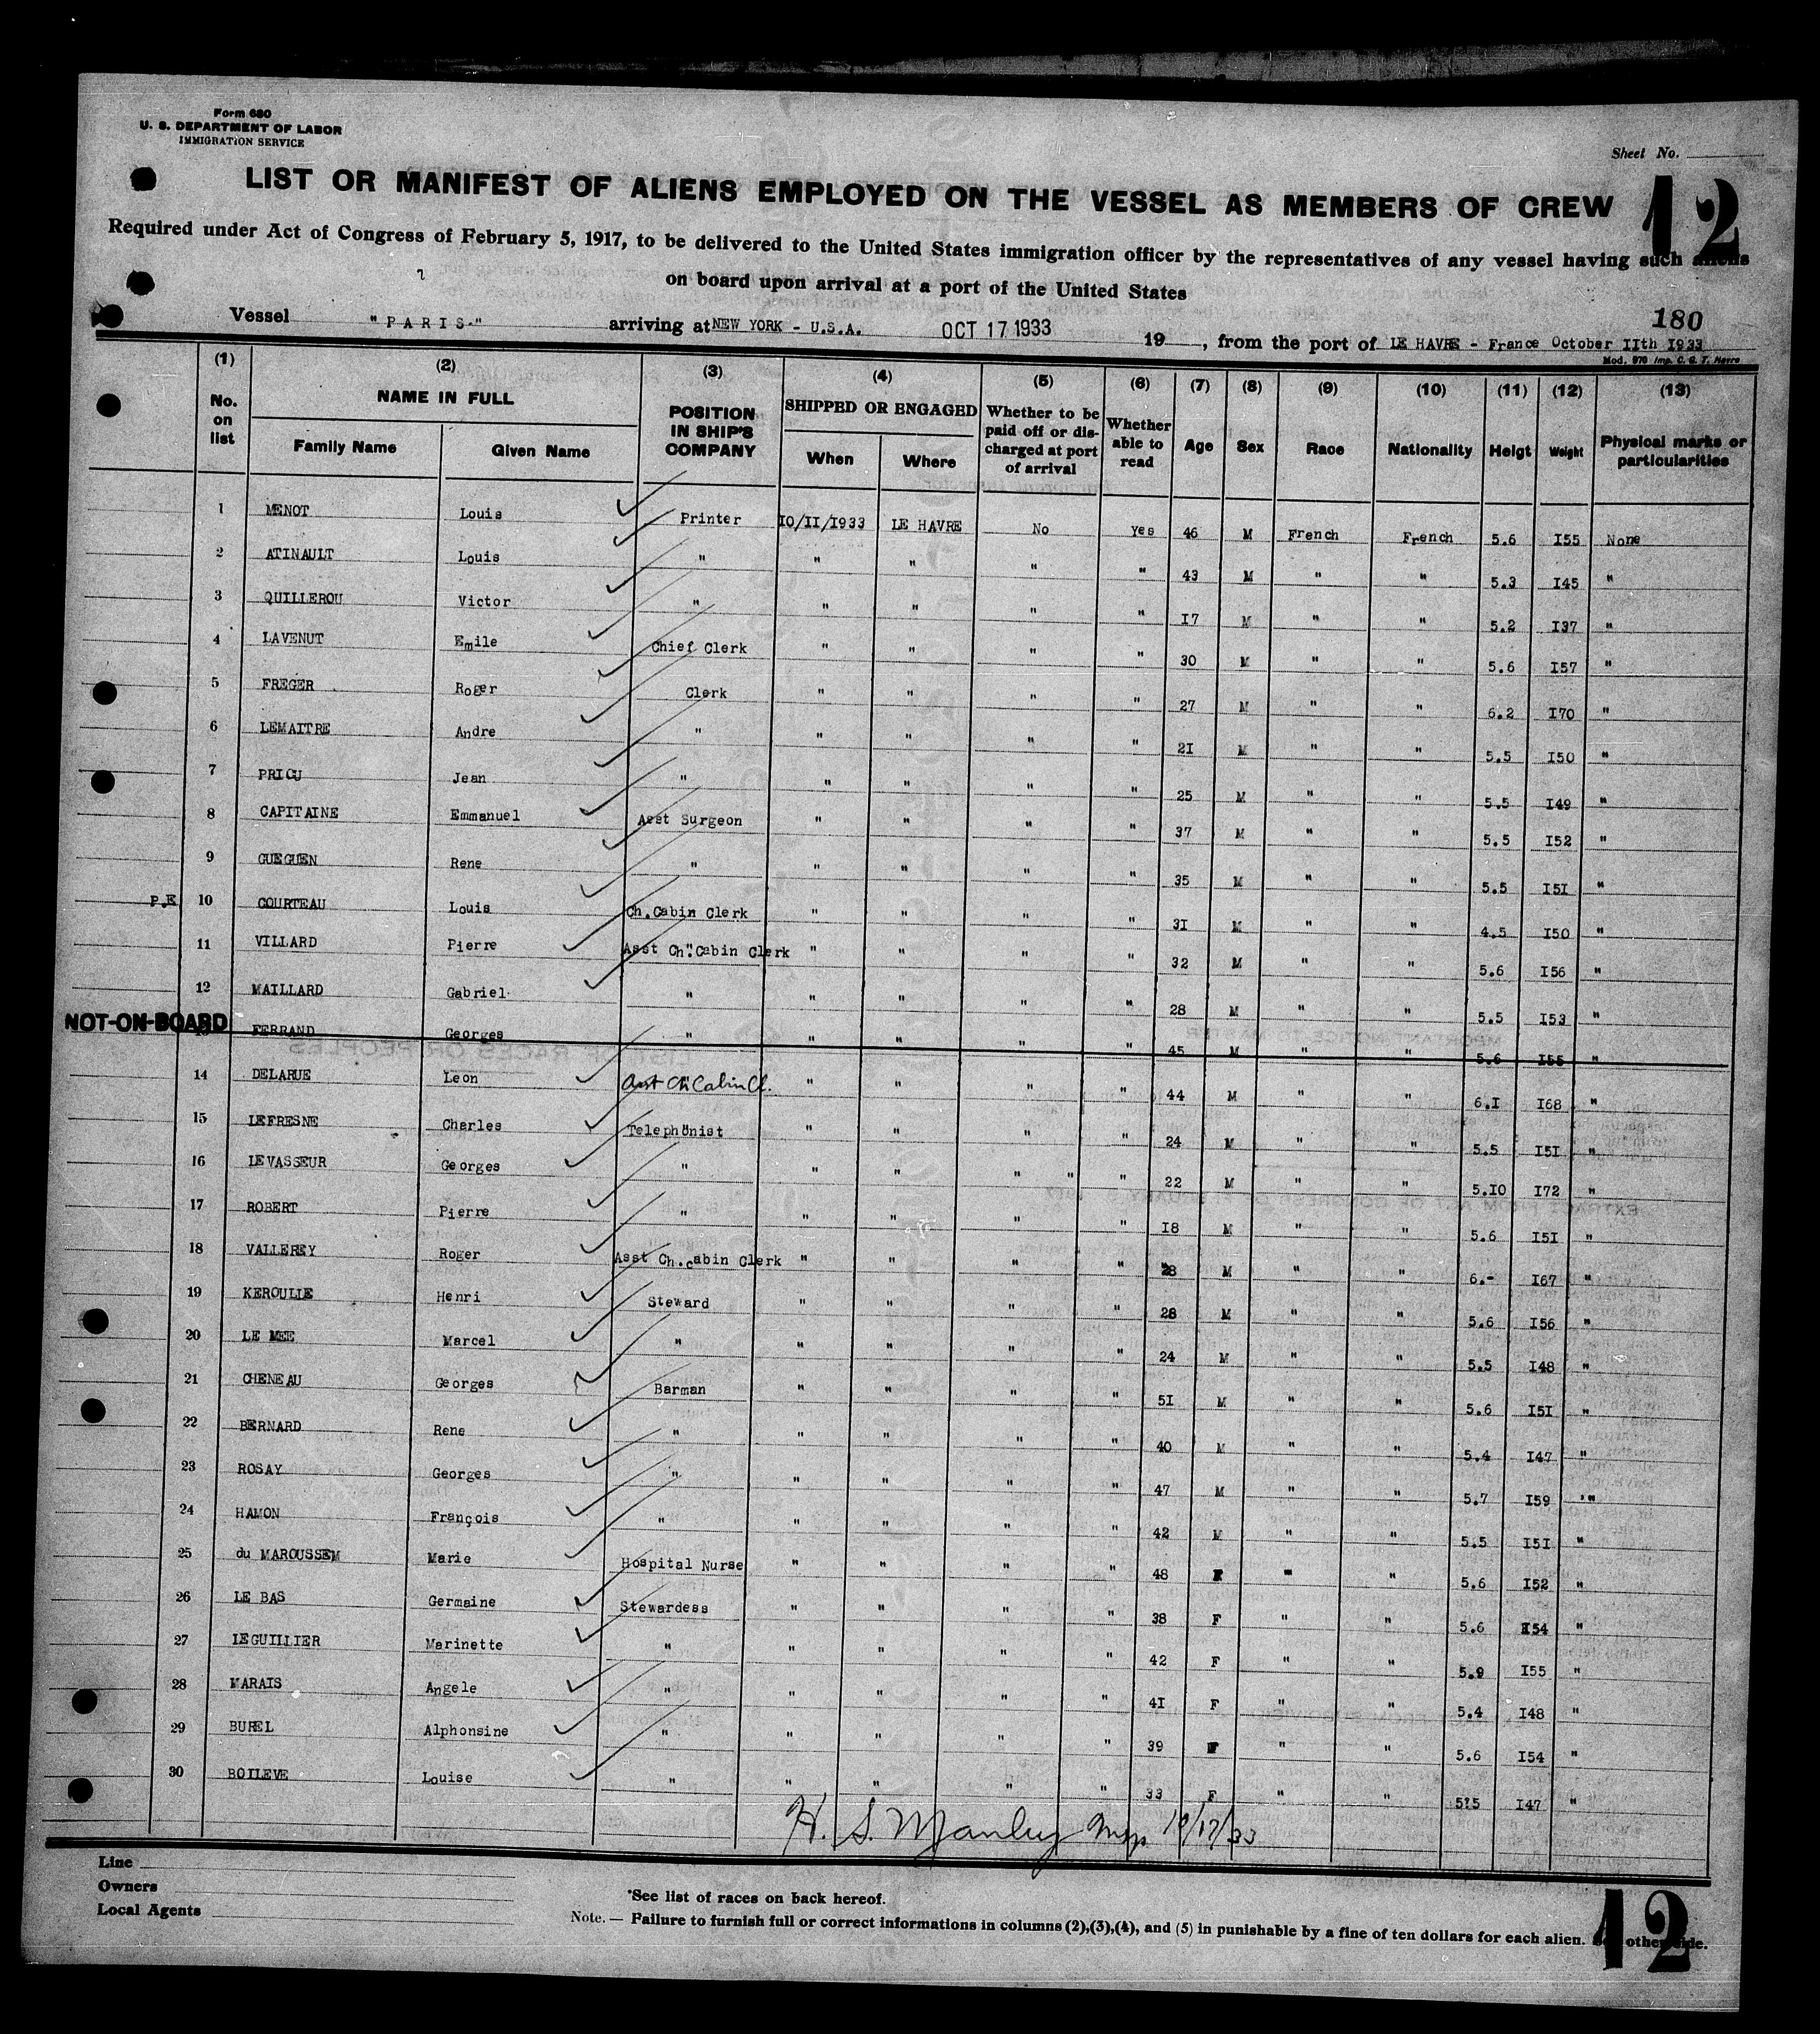 Form 680
U. S. DEPARTMENT OF LABOR
IMMIGRATION SERVICE
Sheet No.
12
LIST OR MANIFEST OF ALIENS EMPLOYED ON THE VESSEL AS MEMBERS OF CREW
Required under Act of Congress of February 5, 1917, to be delivered to the United States immigration officer by the representatives of any vessel having such aliens
on board upon arrival at a port of the United States
180
Vessel "PARIS" arriving at NEW YORK - U.S.A. OCT 17 1933 19 , from the port of LE HAVRE - France October IIth I933
Mod. 970 Imp. C. G. T. Havre
(1) (2) (3) (4) (5) (6) (7) (8) (9) (10) (11) (12) (13)
No. on list NAME IN FULL Family Name Given Name POSITION IN SHIP'S COMPANY SHIPPED OR ENGAGED When Where Whether to be paid off or discharged at port of arrival Whether able to read Age Sex Race Nationality Heigt Weight Physical marks or particularities
1 MENOT Louis Printer IO/II/I933 LE HAVRE No Yes 46 M French French 5.6 I55 None
2 ATINAULT Louis " " " " " 43 M " " 5.3 I45 "
3 QUILLEROU Victor " " " " " I7 M " " 5.2 I37 "
4 LAVENUT Emile Chief Clerk " " " " 30 M " " 5.6 I57 "
5 FREGER Roger Clerk " " " " 27 M " " 6.2 I70 "
6 LEMAITRE Andre " " " " " 2I M " " 5.5 I50 "
7 PRIGU Jean " " " " " 25 M " " 5.5 I49 "
8 CAPITAINE Emmanuel Asst Surgeon " " " " 37 M " " 5.5 I52 "
9 GUEGUEN Rene " " " " " 35 M " " 5.5 I5I "
P.E 10 COURTEAU Louis Ch.Cabin Clerk " " " " 3I M " " 4.5 I50 "
11 VILLARD Pierre Asst Ch".Cabin Clerk " " " " 32 M " " 5.6 I56 "
12 MAILLARD Gabriel " " " " " 28 M " " 5.5 I53 "
NOT-ON-BOARD 13 FERRAND Georges " " " " " 45 M " " 5.6 I55 "
14 DELARUE Leon Asst Ch Cabin Cl. " " " " 44 M " " 6.I I68 "
15 LEFRESNE Charles Telephonist " " " " 24 M " " 5.5 I5I "
16 LEVASSEUR Georges " " " " " " 22 M " " 5.IO I72 "
17 ROBERT Pierre " " " " " I8 M " " 5.6 I5I "
18 VALLEREY Roger Asst Ch.cabin Clerk " " " " 28 M " " 6.- I67 "
19 KEROULLE Henri Steward " " " " 28 M " " 5.6 I56 "
20 LE MEE Marcel " " " " " 24 M " " 5.5 I48 "
21 CHENEAU Georges Barman " " " " 5I M " " 5.6 I5I "
22 BERNARD Rene " " " " " 40 M " " 5.4 I47 "
23 ROSAY Georges " " " " " 47 M " " 5.7 I59 "
24 HAMON François " " " " " 42 M " " 5.5 I5I "
25 du MAROUSSEM Marie Hospital Nurse " " " " 48 F " " 5.6 I52 "
26 LE BAS Germaine Stewardess " " " " 38 F " " 5.6 I54 "
27 LEGUILLIER Marinette " " " " " 42 F " " 5.9 I55 "
28 MARAIS Angele " " " " " 4I F " " 5.4 I48 "
29 BUREL Alphonsine " " " " " 39 F " " 5.6 I54 "
30 BOILEVE Louise " " " " " 33 F " " 5.5 I47 "
H. S. Manley Insp. 10/17/33
Line
Owners
Local Agents
*See list of races on back hereof.
Note. — Failure to furnish full or correct informations in columns (2),(3),(4), and (5) in punishable by a fine of ten dollars for each alien. See other side.
12